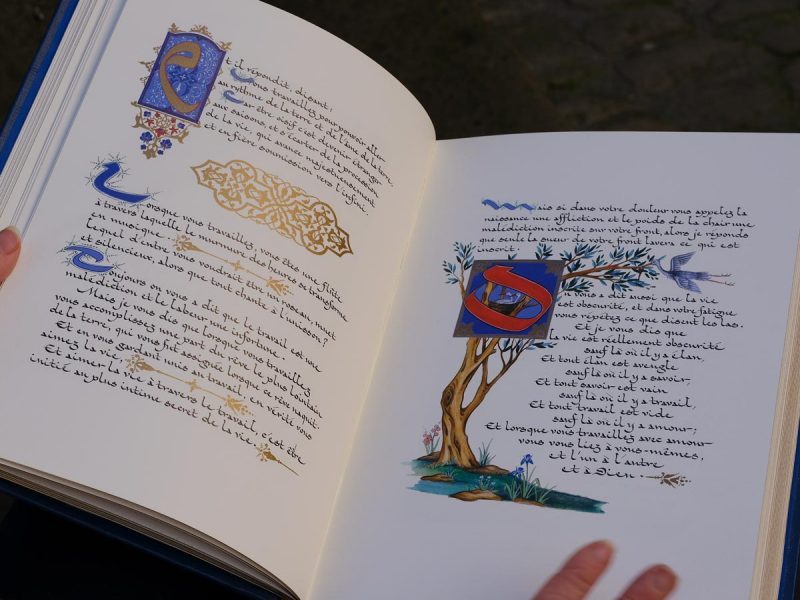 Et il répondit, disant :
Vous travaillez pour pouvoir aller
au rythme de la terre et de l'âme de la terre.
Car être oisif c'est devenir étranger
aux saisons, et s'écarter de la procession
de la vie, qui avance majestueusement
et en fière soumission vers l'infini.
Lorsque vous travaillez, vous êtes une flûte
à travers laquelle le murmure des heures se transforme
en musique.
Lequel d'entre vous voudrait être un roseau, muet
et silencieux, alors que tout chante à l'unisson ?
Toujours on vous a dit que le travail est une
malédiction et le labeur une infortune.
Mais je vous dis que lorsque vous travaillez
vous accomplissez une part du rêve le plus lointain
de la terre, qui vous fut assignée lorsque ce rêve naquit.
Et en vous gardant unis au travail, en vérité vous
aimez la vie,
Et aimer la vie à travers le travail, c'est être
initié au plus intime secret de la vie.
Mais si dans votre douleur vous appelez la
naissance une affliction et le poids de la chair une
malédiction inscrite sur votre front, alors je réponds
que seule la sueur de votre front lavera ce qui est
inscrit.
On vous a dit aussi que la vie
est obscurité, et dans votre fatigue
vous répétez ce que disent les las.
Et je vous dis que
la vie est réellement obscurité
sauf là où il y a élan,
Et tout élan est aveugle
sauf là où il y a savoir,
Et tout savoir est vain
sauf là où il y a travail,
Et tout travail est vide
sauf là où il y a amour ;
Et lorsque vous travaillez avec amour
vous vous liez à vous-mêmes,
et l'un à l'autre
et à Dieu.